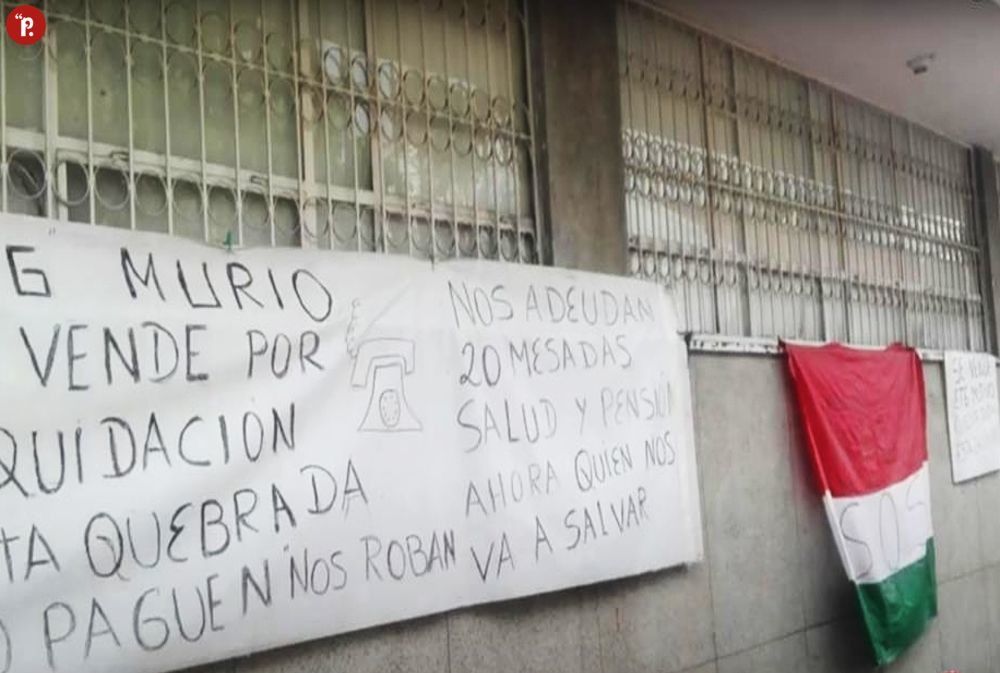 "P.
G MURIO
VENDE POR
QUIDACIÓN
TA QUEBRADA
O PAGUEN NOS ROBAN
NOS ADEUDAN
20 MESADAS
SALUD Y PENSIÓN
AHORA QUIEN NOS
VA A SALVAR
SOS
SE VENDE